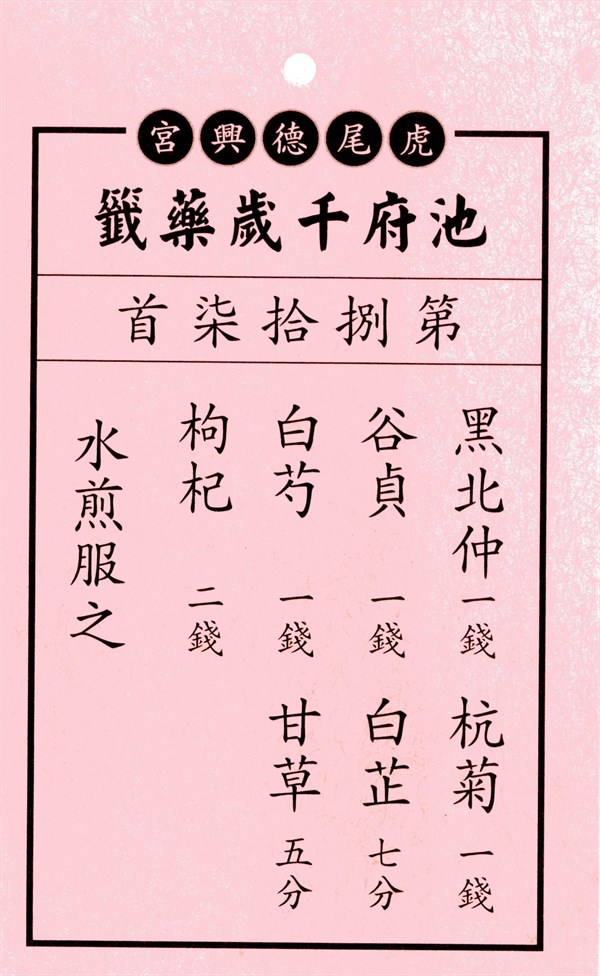 虎尾德興宮
池府千歲藥籤
第捌拾柒首
黑北仲一錢 杭菊一錢
谷貞一錢 白芷七分
白芍一錢 甘草五分
枸杞二錢
水煎服之